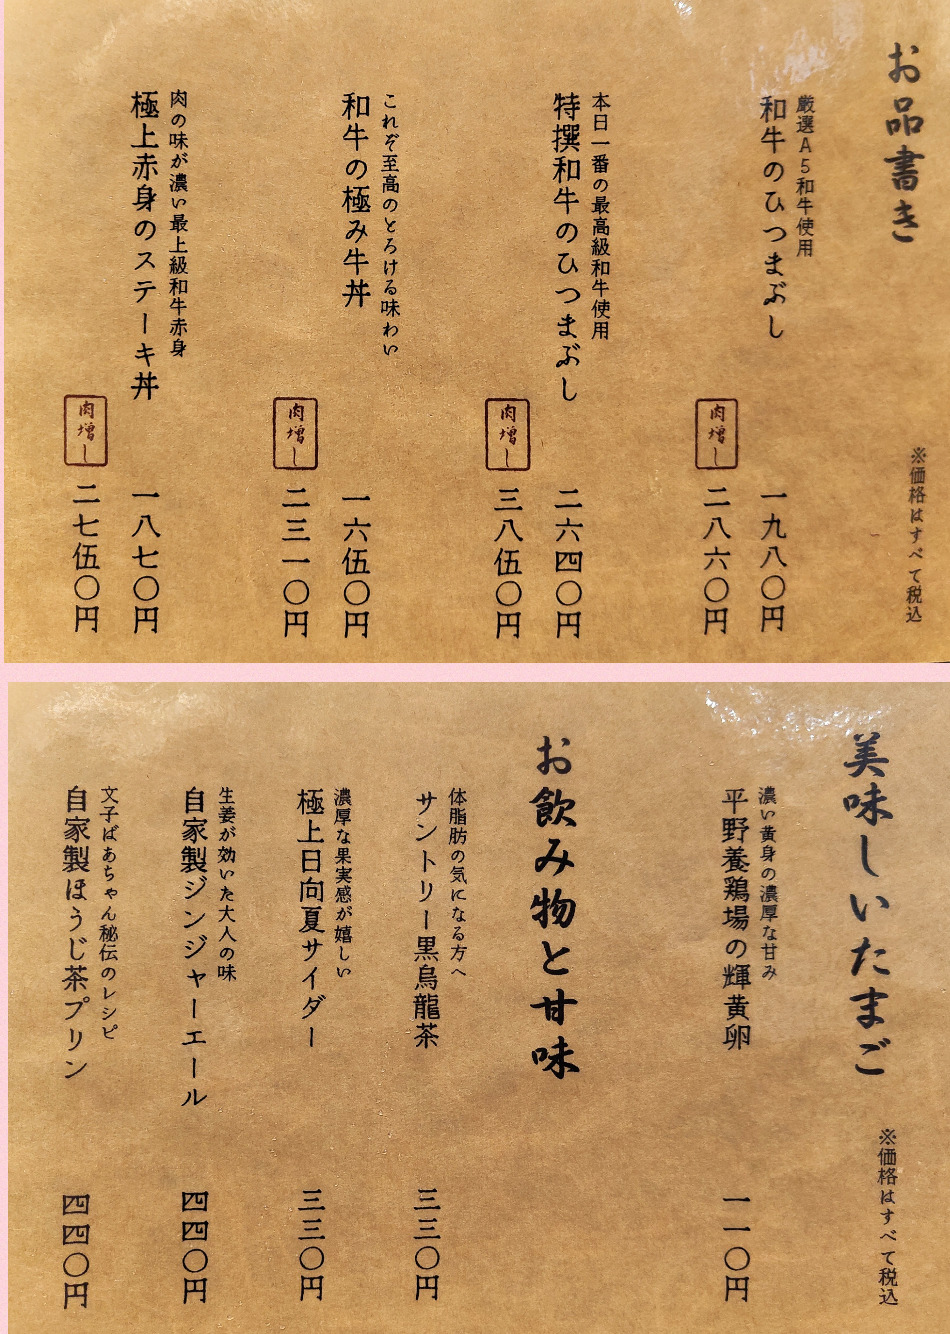 お品書き
※価格はすべて税込
厳選A5和牛使用
和牛のひつまぶし
一九八〇円
肉増し
二八六〇円
本日一番の最高級和牛使用
特撰和牛のひつまぶし
二六四〇円
肉増し
三八伍〇円
これぞ至高のとろける味わい
和牛の極み牛丼
一六伍〇円
肉増し
二三一〇円
肉の味が濃い最上級和牛赤身
極上赤身のステーキ丼
一八七〇円
肉増し
二七伍〇円
美味しいたまご
※価格はすべて税込
濃い黄身の濃厚な甘み
平野養鶏場の輝黄卵
一一〇円
お飲み物と甘味
体脂肪の気になる方へ
サントリー黒烏龍茶
三三〇円
濃厚な果実感が嬉しい
極上日向夏サイダー
三三〇円
生姜が効いた大人の味
自家製ジンジャーエール
四四〇円
文子ばあちゃん秘伝のレシピ
自家製ほうじ茶プリン
四四〇円